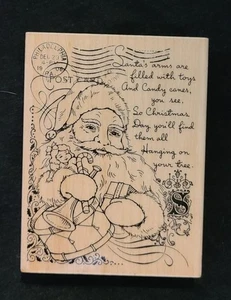 PHILADELPHIA
DEC. 22
POST CARD
Santa's arms are
filled with toys
And Candy canes,
you see.
So Christmas
Day you'll find
them all
Hanging on
your tree.
S